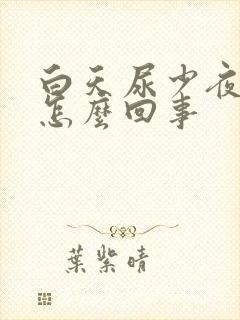 白天尿少夜
怎麼回事
葉紫晴